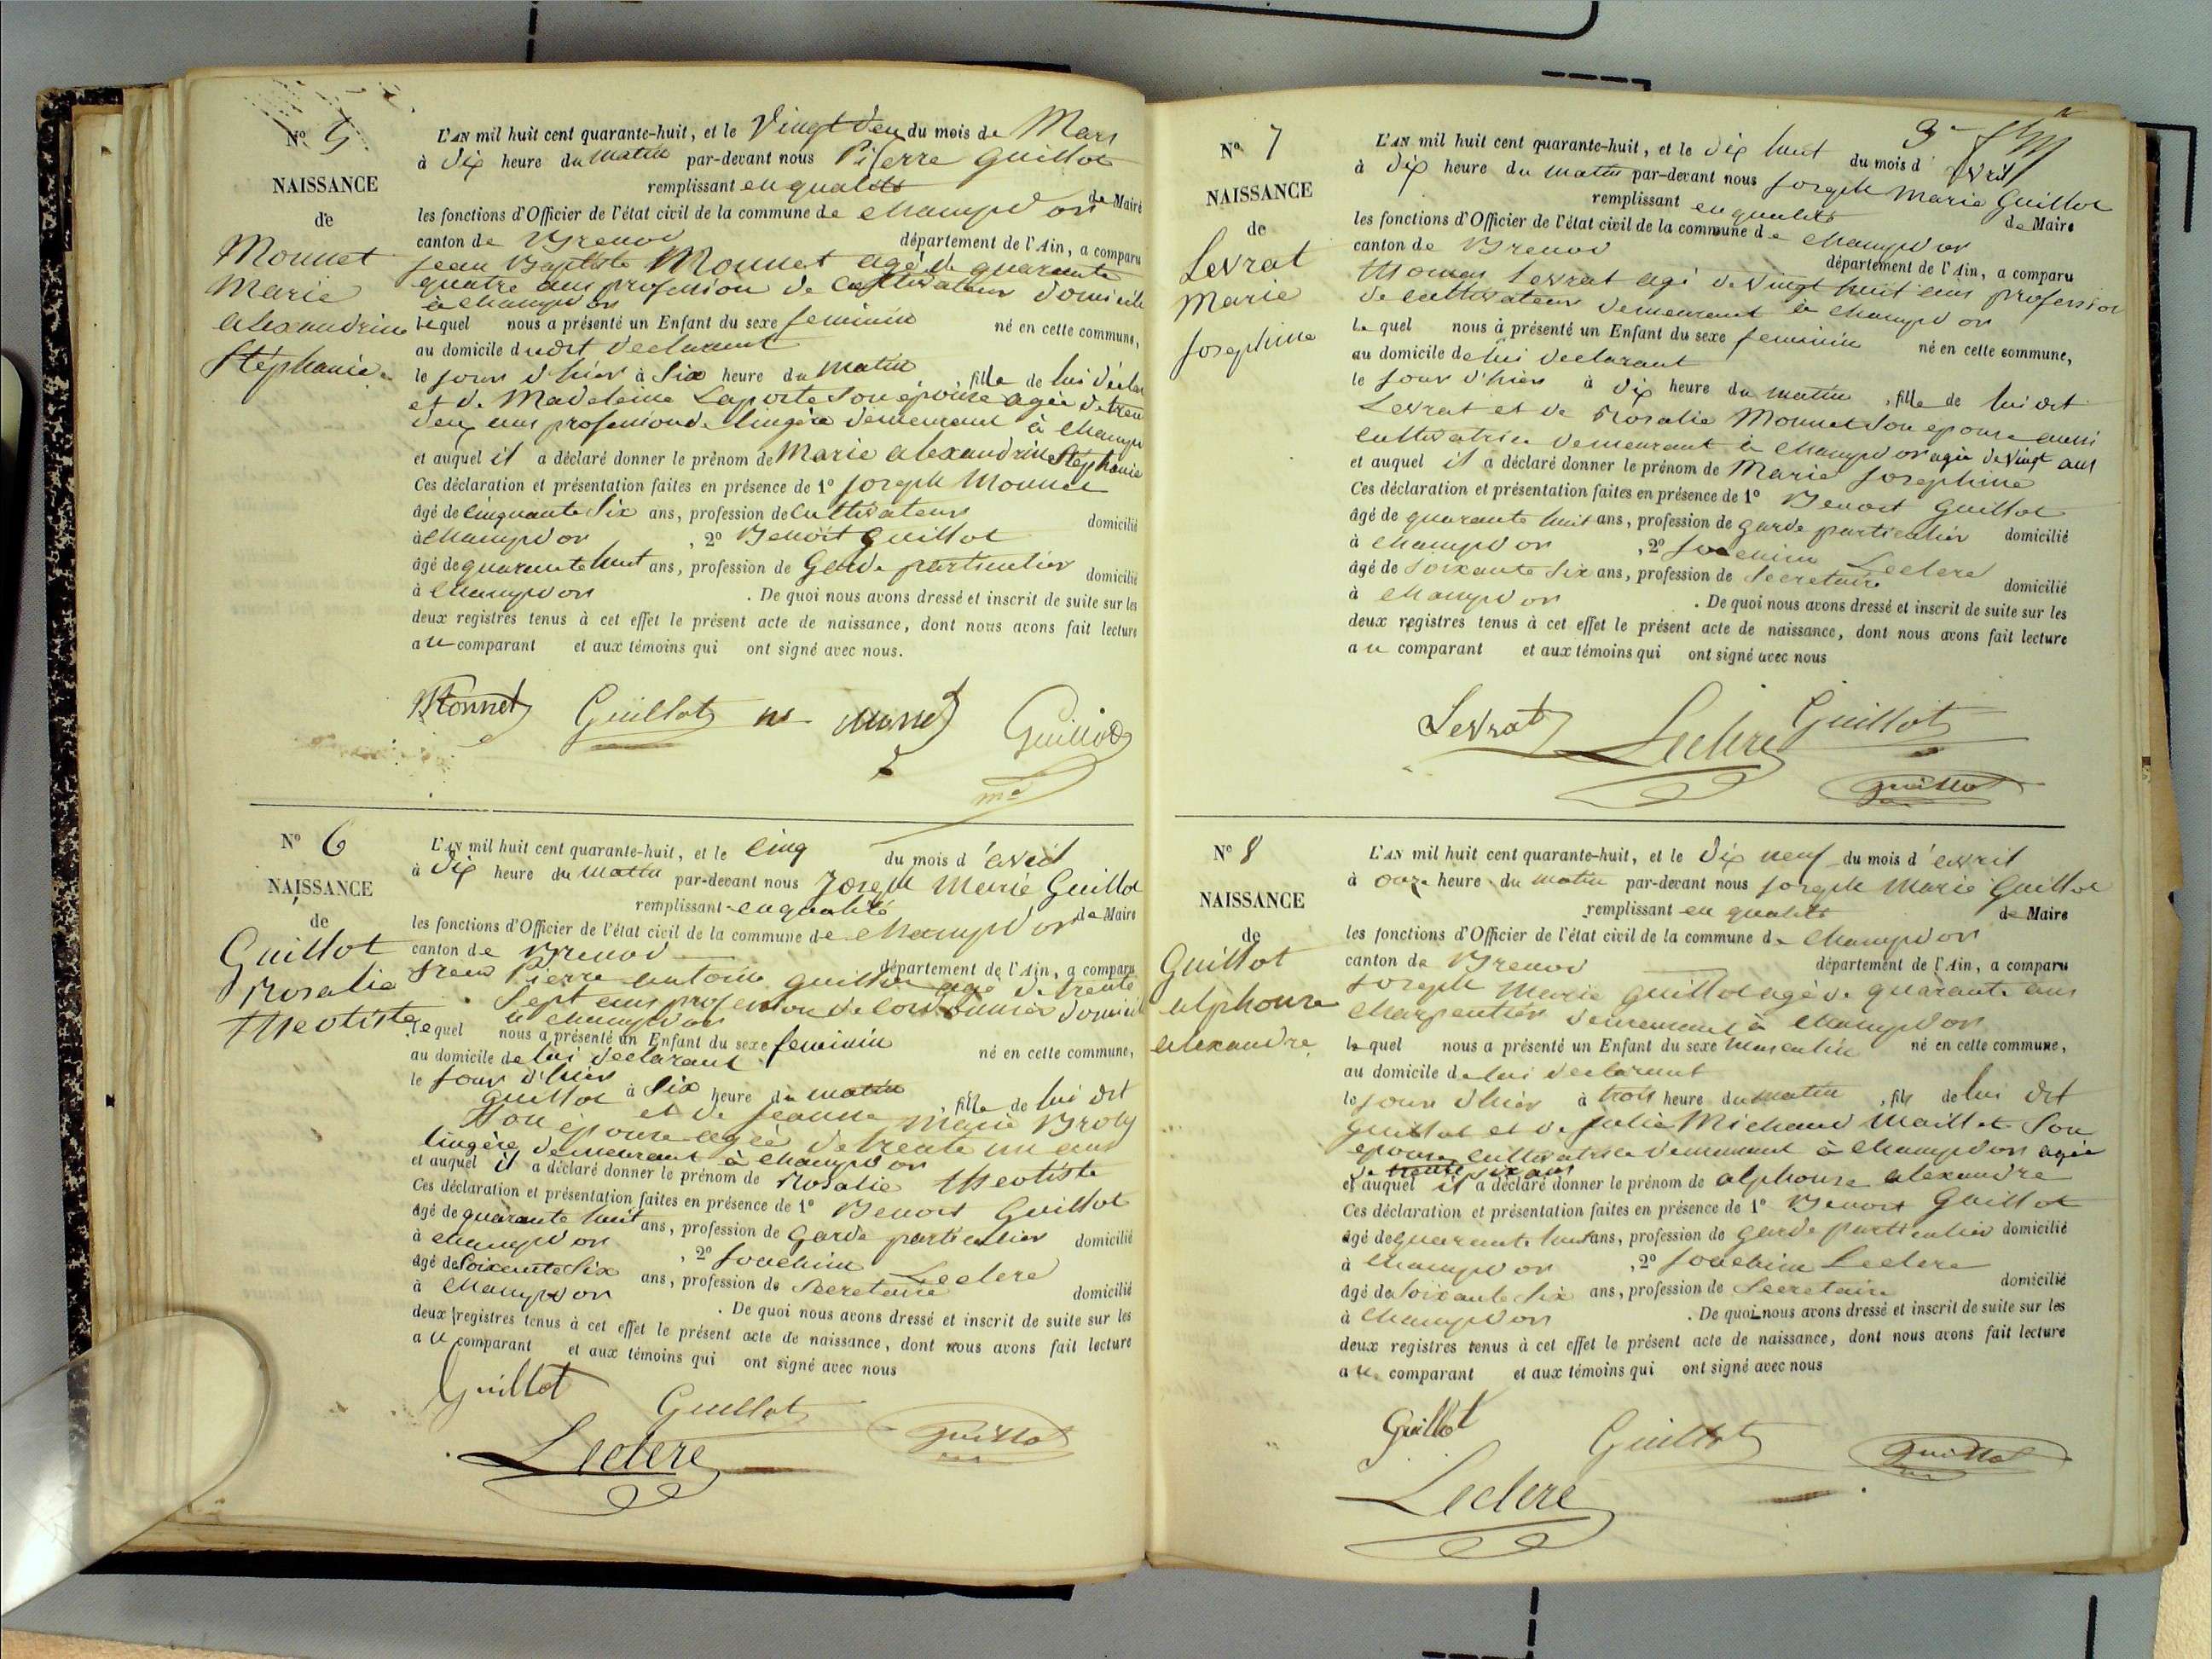 N° 5
NAISSANCE
de
Monnet
Marie
alexandrine
Stéphanie
L'AN mil huit cent quarante-huit, et le Vingt deu du mois de Mars
à Dix heure du matin par-devant nous Pierre Guillot
remplissant en qualité de Maire
les fonctions d'Officier de l'état civil de la commune de Champdor
canton de Brenod département de l'Ain, a comparu
Jean Baptiste Monnet agé de quarante
quatre ans profession de Cultivateur domicilié
à Champdor
lequel nous a présenté un Enfant du sexe feminin né en cette commune,
au domicile dudit declarant
le jour d'hier à Six heure du matin , fille de lui déclar
et de Madeleine Laporte son épouse agée de tren
deux ans profession de lingère demeurant à Champd
et auquel il a déclaré donner le prénom de Marie alexandrine Stéphanie
Ces déclaration et présentation faites en présence de 1° Joseph Monnet
âgé de cinquante Six ans, profession de Cultivateur domicilié
à Champdor , 2° Benoit Guillot
âgé de quarante huit ans, profession de Garde particulier domicilié
à Champdor . De quoi nous avons dressé et inscrit de suite sur les
deux registres tenus à cet effet le présent acte de naissance, dont nous avons fait lecture
au comparant et aux témoins qui ont signé avec nous.
Monnet Guillot Monnet Guillot
N° 6
NAISSANCE
de
Guillot
Rosalie
Theotiste
L'AN mil huit cent quarante-huit, et le Cinq du mois d'avril
à Dix heure du matin par-devant nous Joseph Marie Guillot
remplissant en qualité de Maire
les fonctions d'Officier de l'état civil de la commune de Champdor
canton de Brenod département de l'Ain, a comparu
Pierre antoine Guillot agé de trente
Sept ans profession de cordonnier domicilié
à Champdor
lequel nous a présenté un Enfant du sexe feminin né en cette commune,
au domicile de lui declarant
le jour d'hier à Six heure du matin , fille de lui dit
Guillot et de Jeanne Marie Broly
Son épouse agée de trente un ans
lingère demeurant à Champdor
et auquel il a déclaré donner le prénom de Rosalie Theotiste
Ces déclaration et présentation faites en présence de 1° Benoit Guillot
âgé de quarante huit ans, profession de Garde particulier domicilié
à Champdor , 2° Joachim Leclerc
âgé de Soixante Six ans, profession de Secretaire domicilié
à Champdor . De quoi nous avons dressé et inscrit de suite sur les
deux registres tenus à cet effet le présent acte de naissance, dont nous avons fait lecture
au comparant et aux témoins qui ont signé avec nous
Guillot Guillot
Leclerc Guillot
N° 7
NAISSANCE
de
Levrat
Marie
Josephine
L'AN mil huit cent quarante-huit, et le dix huit du mois d'avril
à Dix heure du matin par-devant nous Joseph Marie Guillot
remplissant en qualité de Maire
les fonctions d'Officier de l'état civil de la commune de Champdor
canton de Brenod département de l'Ain, a comparu
Thomas Levrat agé de vingt huit ans profession
de cultivateur demeurant à Champdor
lequel nous à présenté un Enfant du sexe feminin né en cette commune,
au domicile de lui declarant
le jour d'hier à dix heure du matin , fille de lui dit
Levrat et de Rosalie Monnet son epouse aussi
cultivatrice demeurant à Champdor agée de vingt ans
et auquel il a déclaré donner le prénom de Marie Josephine
Ces déclaration et présentation faites en présence de 1° Benoit Guillot
âgé de quarante huit ans, profession de garde particulier domicilié
à Champdor , 2° Joachim Leclerc
âgé de Soixante Six ans, profession de Secretaire domicilié
à Champdor . De quoi nous avons dressé et inscrit de suite sur les
deux registres tenus à cet effet le présent acte de naissance, dont nous avons fait lecture
au comparant et aux témoins qui ont signé avec nous
Levrat Leclerc Guillot
Guillot
N° 8
NAISSANCE
de
Guillot
alphonse
alexandre
L'AN mil huit cent quarante-huit, et le Dix neuf du mois d'avril
à onze heure du matin par-devant nous Joseph Marie Guillot
remplissant en qualité de Maire
les fonctions d'Officier de l'état civil de la commune de Champdor
canton de Brenod département de l'Ain, a comparu
Joseph Marie Guillot agé de quarante ans
Charpentier demeurant à Champdor
lequel nous a présenté un Enfant du sexe masculin né en cette commune,
au domicile de lui declarant
le jour d'hier à trois heure du matin , fils de lui dit
Guillot et de Julie Michaud Maillet Son
epouse cultivatrice demeurant à Champdor agée
de trente six ans
et auquel il a déclaré donner le prénom de alphonse alexandre
Ces déclaration et présentation faites en présence de 1° Benoit Guillot
âgé de quarante huit ans, profession de garde particulier domicilié
à Champdor , 2° Joachim Leclerc
âgé de Soixante Six ans, profession de Secretaire domicilié
à Champdor . De quoi nous avons dressé et inscrit de suite sur les
deux registres tenus à cet effet le présent acte de naissance, dont nous avons fait lecture
au comparant et aux témoins qui ont signé avec nous
Guillot Guillot Guillot
Leclerc